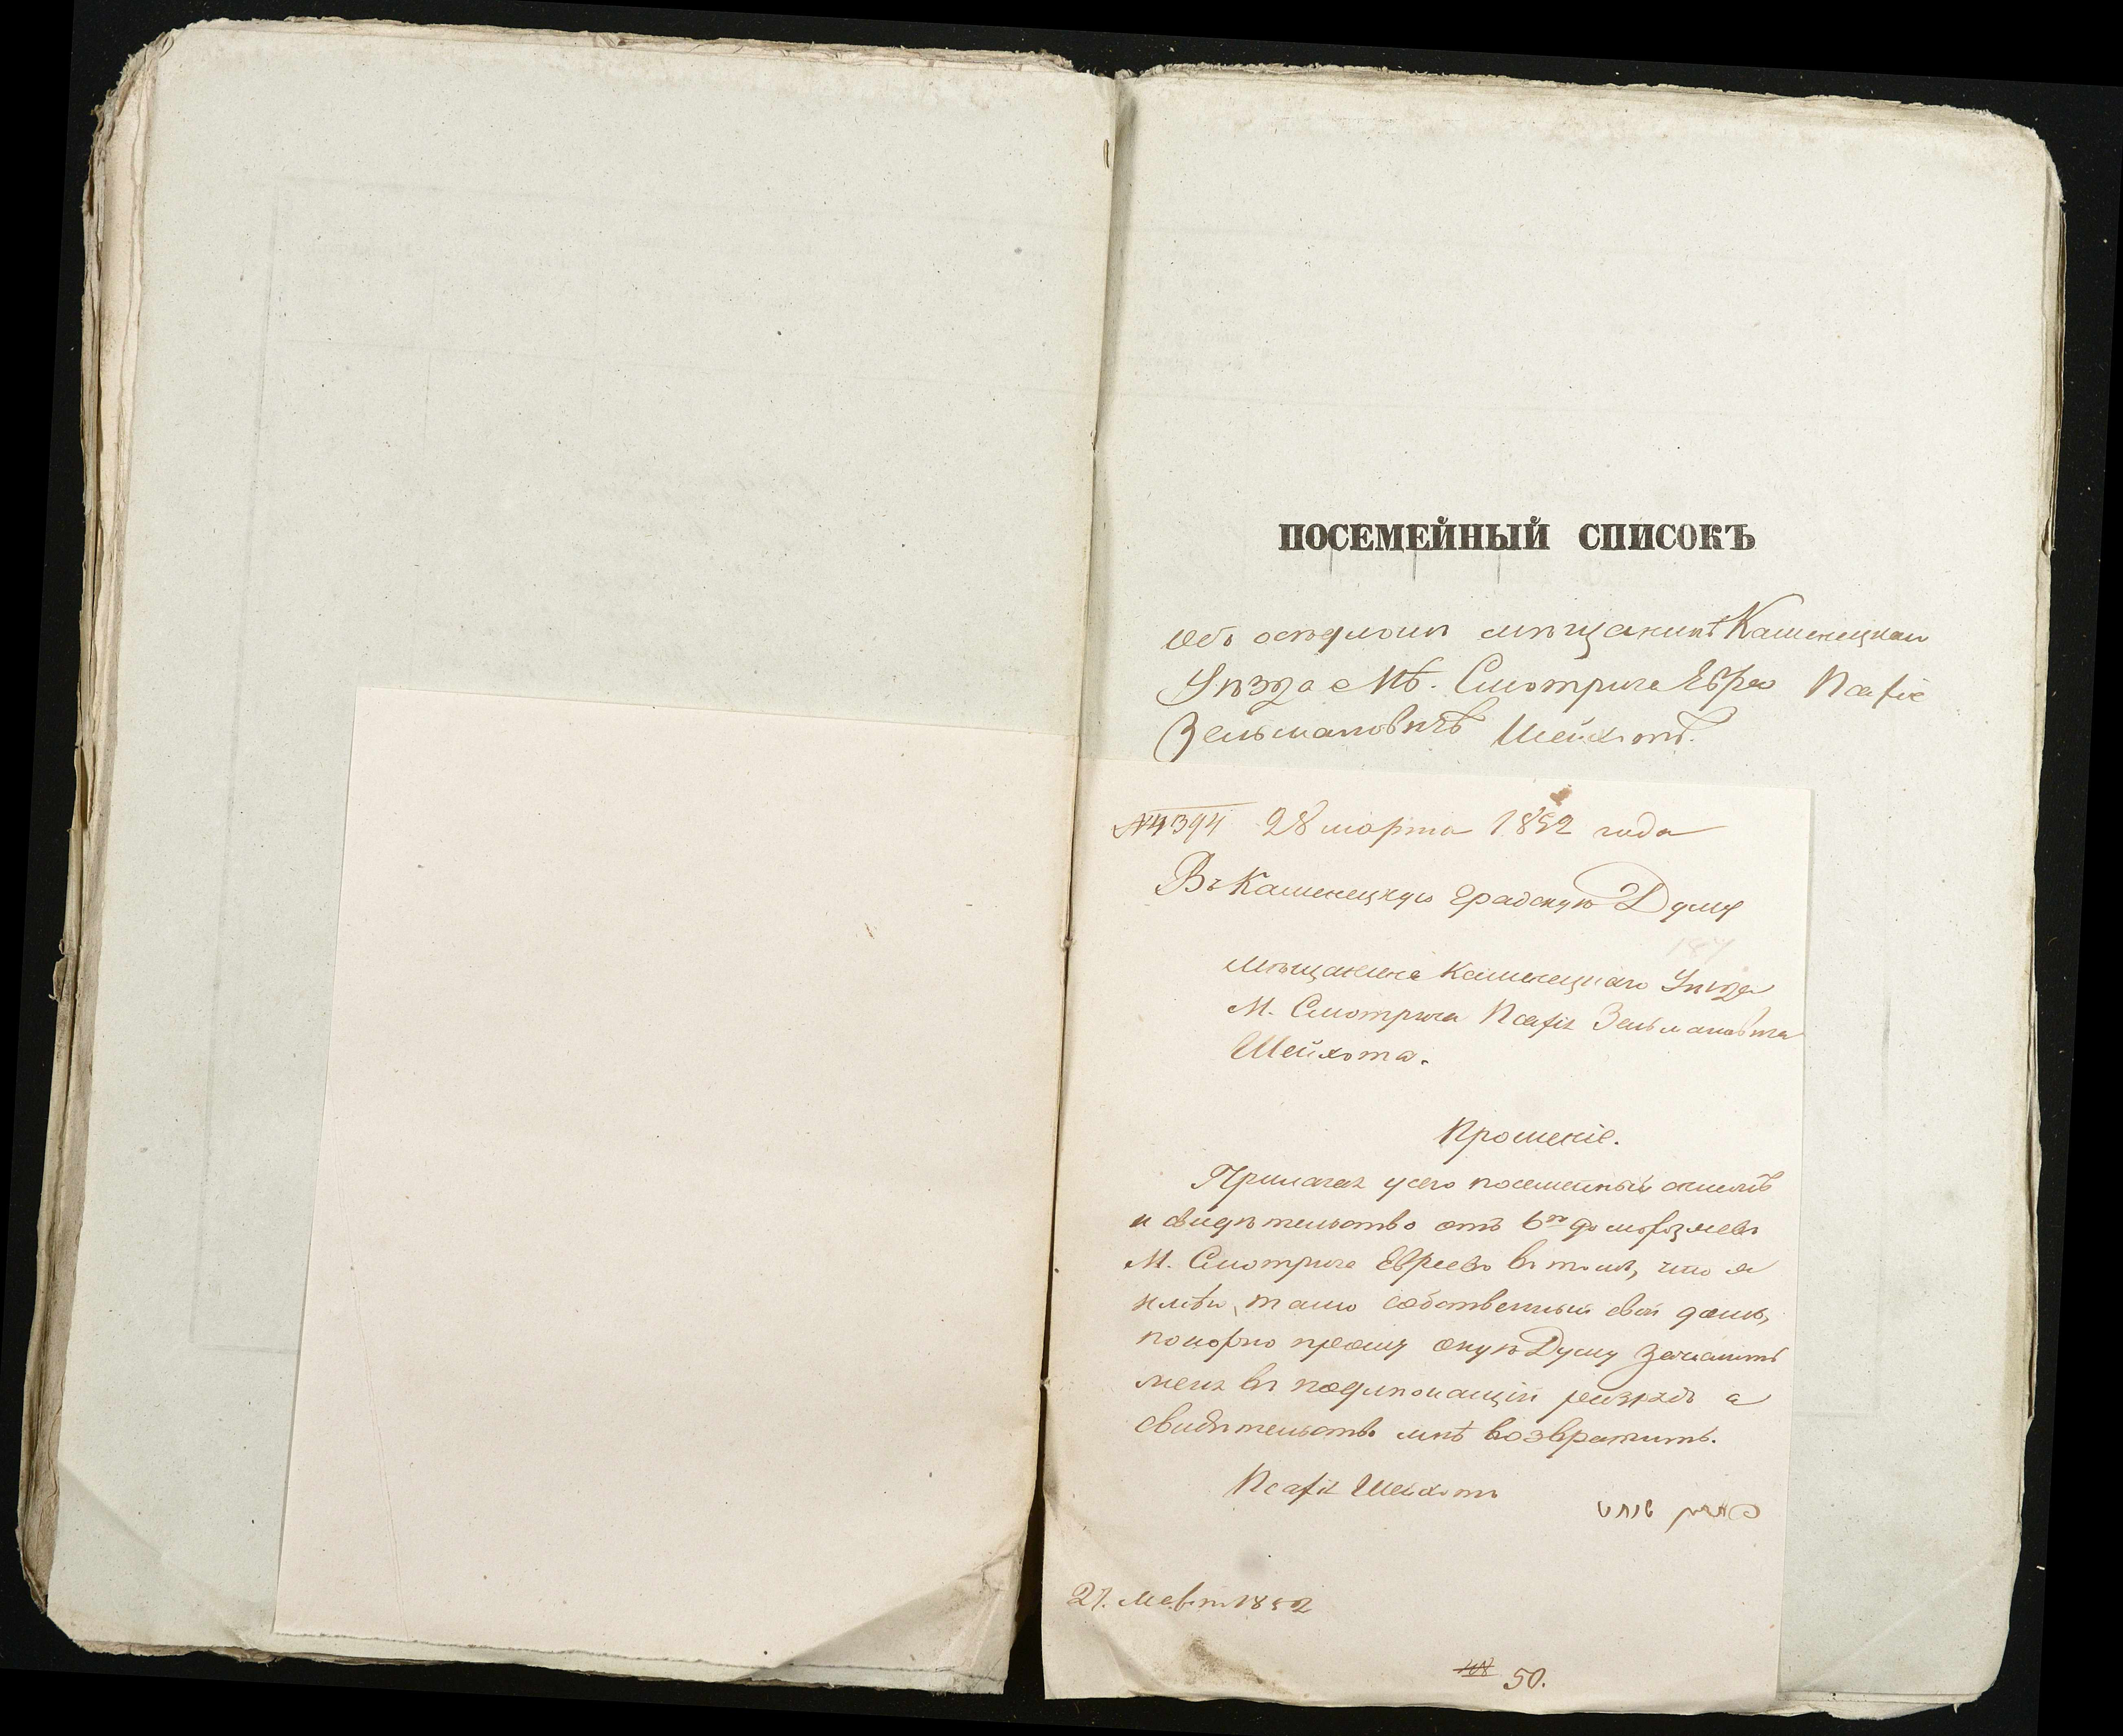 ПОСЕМЕЙНЫЙ СПИСОКЪ
Объ осѣдломъ мѣщанинѣ Каменецкаго
Уѣзда М. Смотрича Еврея
Зельмановичѣ Шейхетѣ.
№ 4394 28 марта 1852 года
Въ Каменецкую Градскую Думу
мѣщанина Каменецкаго Уѣзда
М. Смотрича Зельмановича
Шейхета.
Прошеніе.
Прилагая у сего посемейный списокъ
и свидѣтельство отъ 6ти домохозяевъ
М. Смотрича Евреевъ въ томъ, что я
имѣю тамо собственный свой домъ,
покорно прошу оную Думу зачислить
меня въ подлежащій разрядъ а
свидѣтельство мнѣ возвратить.
Шейхетъ
27. Марта 1852
50.